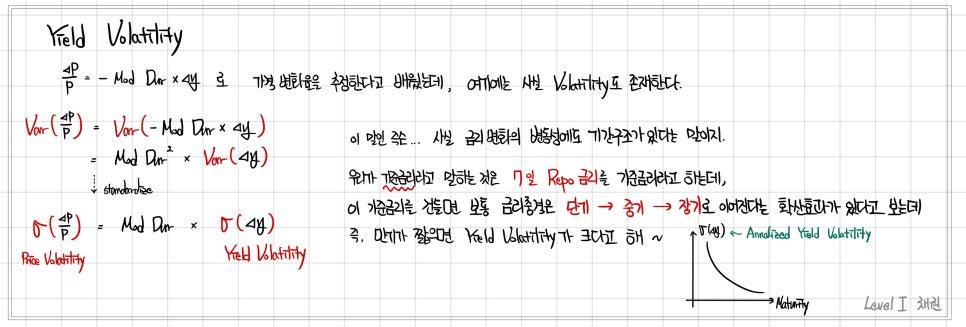 Yield Volatility
ΔP/P = - Mod Dur × Δy 로 가격 변화율을 추정한다고 배웠는데, 여기에는 사실 Volatility도 존재한다.
Var(ΔP/P) = Var(- Mod Dur × Δy)
= Mod Dur² × Var(Δy)
standardize
σ(ΔP/P) = Mod Dur × σ(Δy)
Price Volatility
Yield Volatility
이 말인 즉슨... 사실 금리변화의 변동성에도 기간구조가 있다는 말이지.
우리가 기준금리라고 말하는 것은 7일 Repo 금리를 기준금리라고 하는데,
이 기준금리를 건들면 보통 금리충격은 단기 → 중기 → 장기로 이어진다는 확산효과가 있다고 보는데
즉, 만기가 짧으면 Yield Volatility가 크다고 해 ~
σ(Δy) ← Annalized Yield Volatility
Maturity
Level I 채권